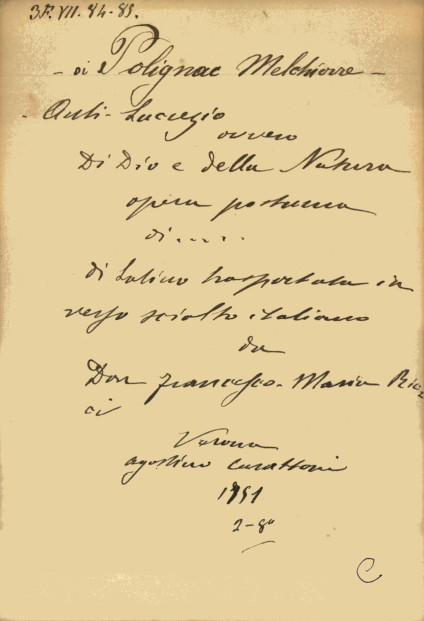 3F. VII. 84-85.
- di Polignac Melchiorre -
Anti-Lucrezio
ovvero
Di Dio e della Natura
opera postuma
di.....
di Latino trasportata in
verso sciolto italiano
da
Don Francesco-Maria Ric
ci
Verona
Agostino Carattoni
1751
2-8°
C